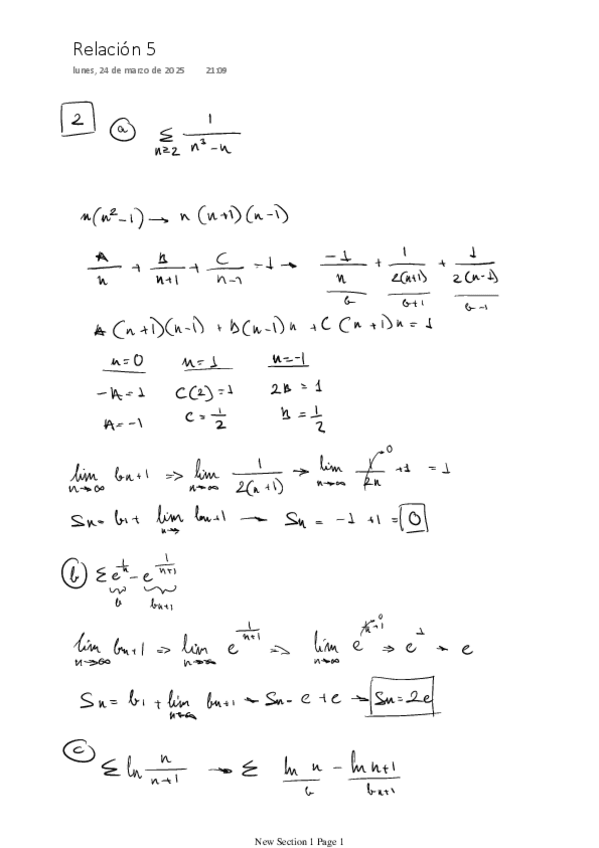 Relación 5
lunes, 24 de marzo de 2025 21:09
2 a Σ n≥2 1/(n³-n)
n(n²-1) → n(n+1)(n-1)
A/n + B/(n+1) + C/(n-1) = 1 → -1/n + 1/(2(n+1)) + 1/(2(n-1))
b b+1 b-1
A(n+1)(n-1) + B(n-1)n + C(n+1)n = 1
n=0 n=1 n=-1
-A=1 C(2)=1 2B=1
A=-1 C=1/2 B=1/2
lim n→∞ bn+1 => lim n→∞ 1/(2(n+1)) → lim n→∞ 1/2n 0 +1 = 1
Sn = b1 + lim n→ bn+1 → Sn = -1 +1 = 0
b) Σ e^(1/n) - e^(1/(n+1))
b bn+1
lim n→∞ bn+1 => lim n→∞ e^(1/(n+1)) => lim n→∞ e => e¹ → e
Sn = b1 + lim n→∞ bn+1 → Sn = e + e → Sn = 2e
c) Σ ln n/(n+1) → Σ ln n - ln n+1
b bn+1
New Section 1 Page 1